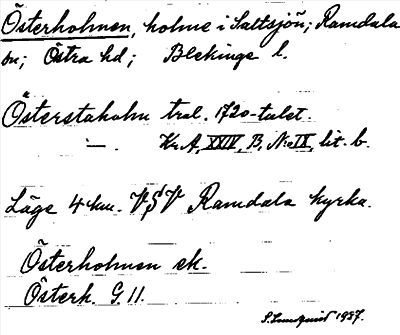 Österholmen, holme i Saltsjön; Ramdala
sn; Östra hd; Blekinge l.
Österstaholm tral. 1720-talet.
—"— Kr. A, XXIV, B, N:o IX, lit. b.
Läge 4 km. VSV Ramdala kyrka.
Österholmen ek.
Österh. G. 11.
S. Lundquist 1937.